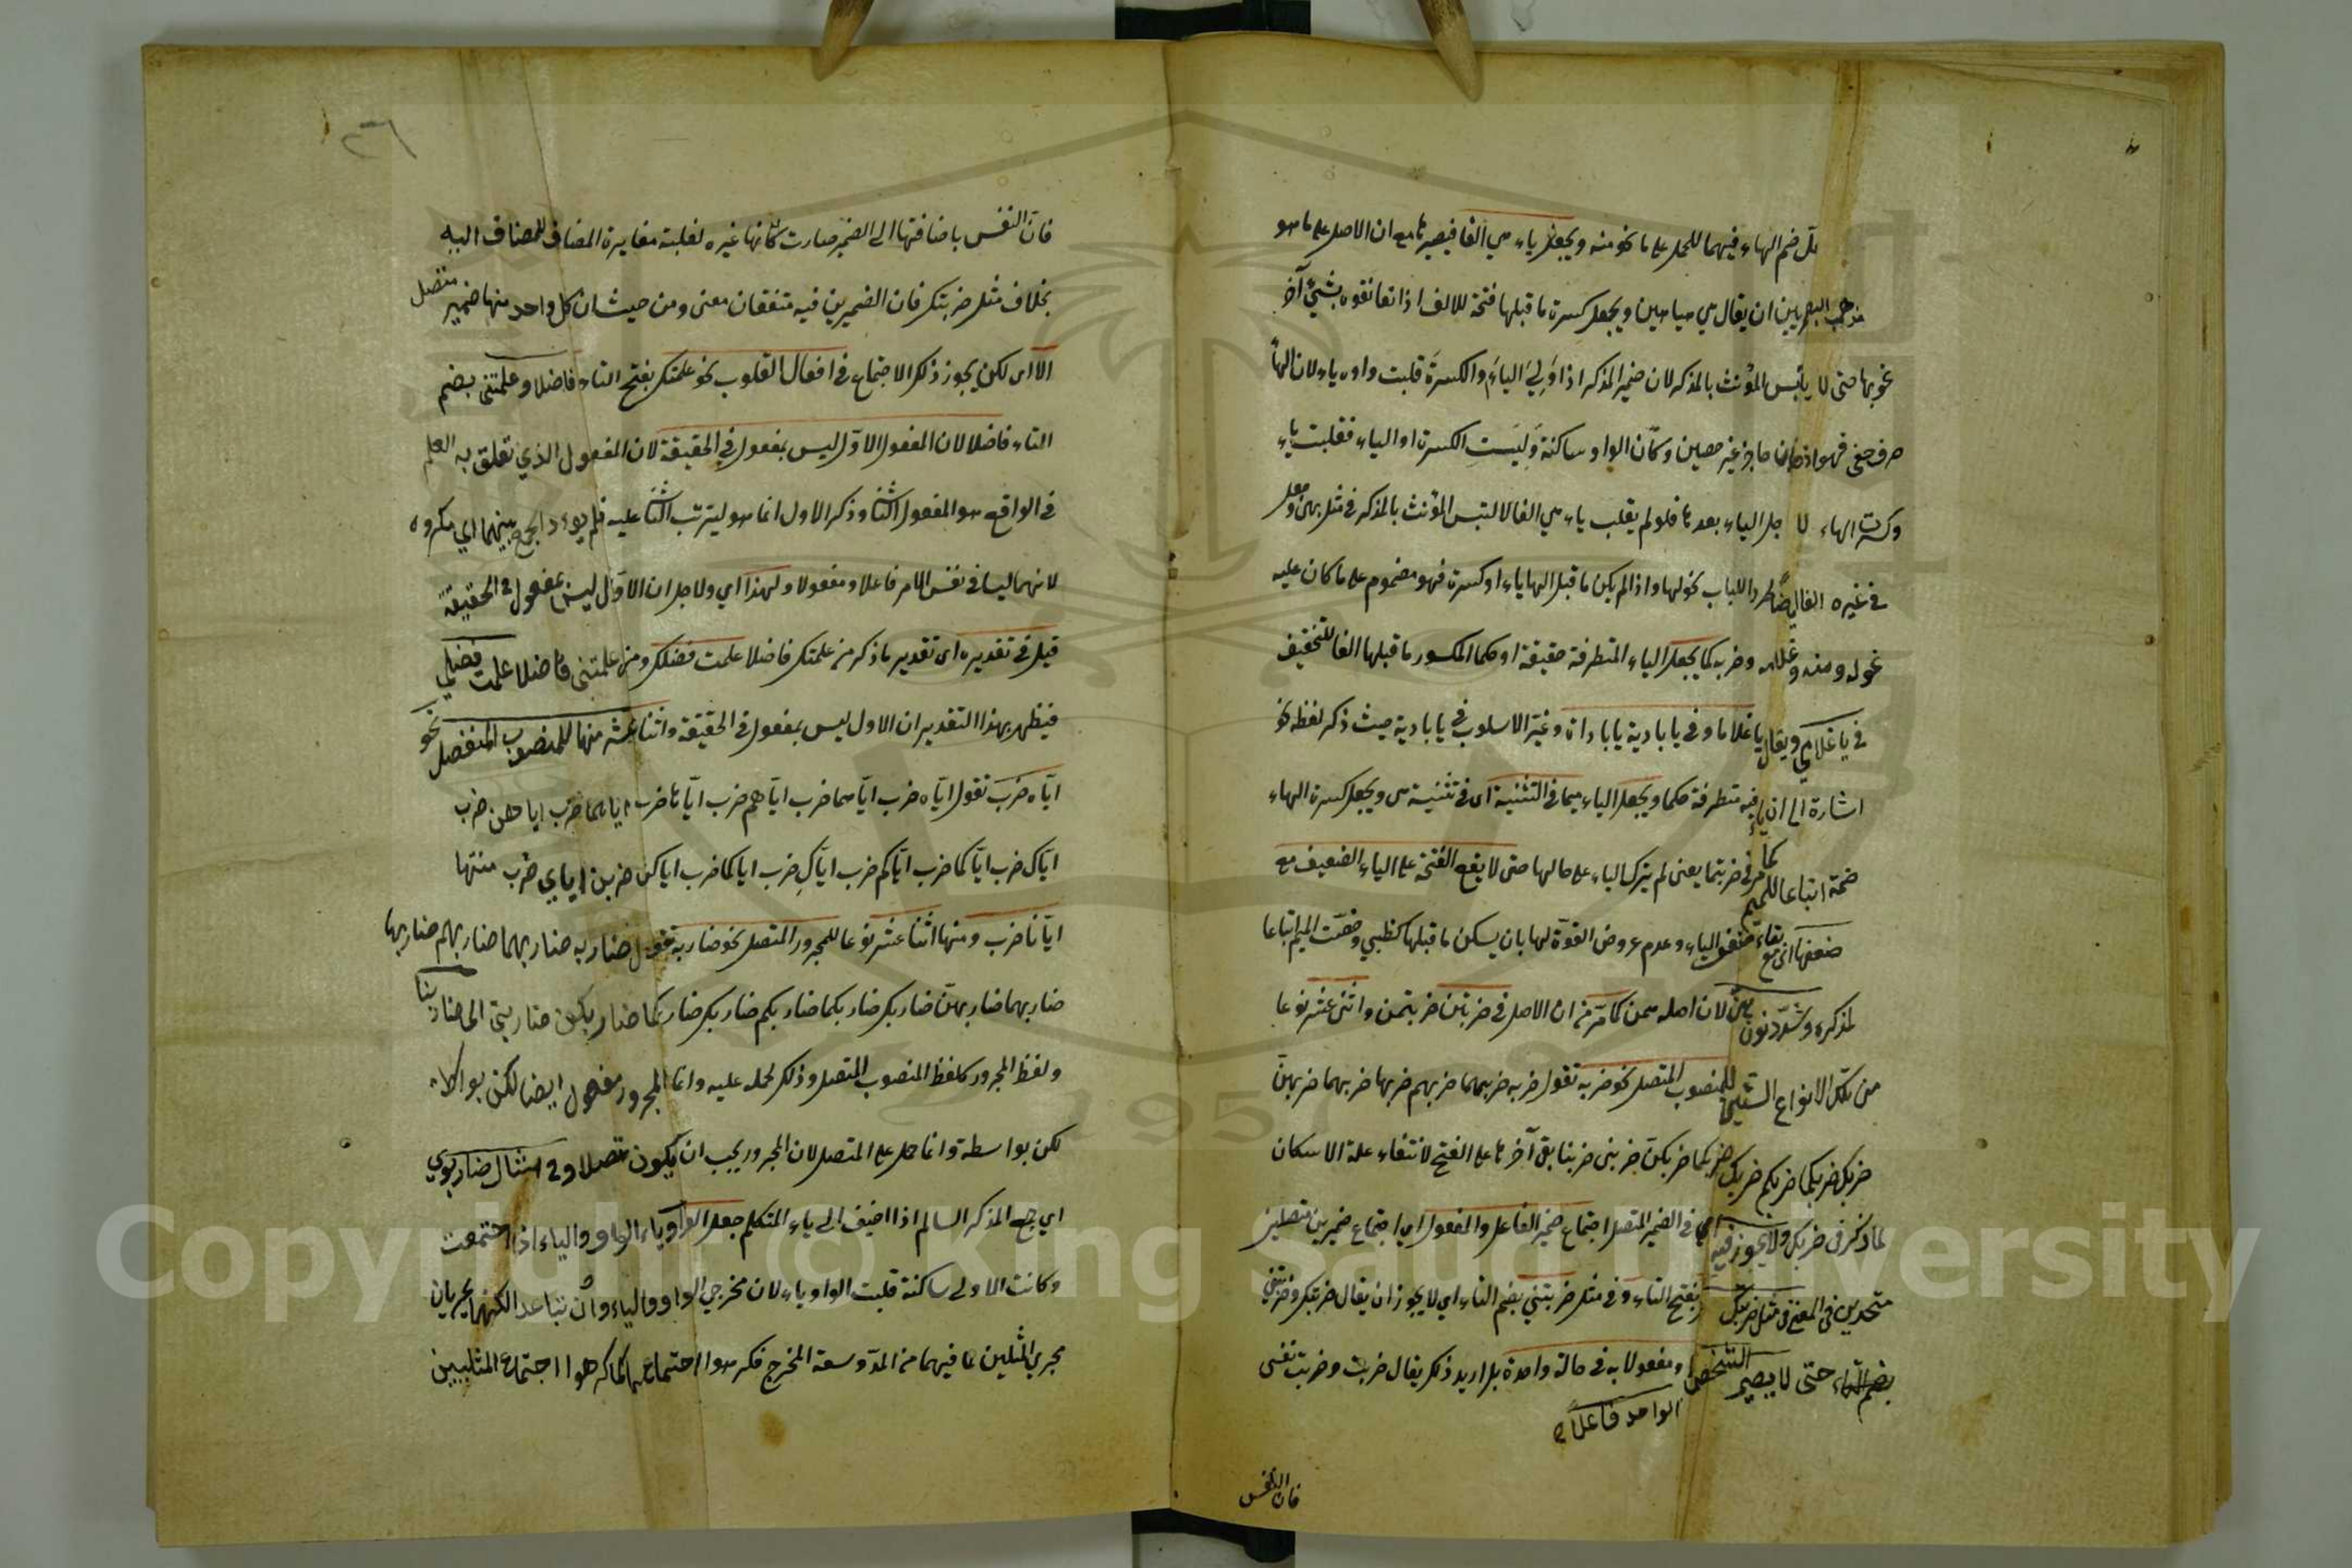 ضم الهاء فيهما للحمل على ما نحو منه ويجعل ياء هي الفا فيصير ها مع ان الاصل على ما هو
مذهب البصريين ان يقال هي هيا هين ويجعل كسرة ما قبلها فتحة للالف اذا تعانقوه بشيء آخر
نحو بها حتى لا يلتبس المؤنث بالمذكر لان ضمير المذكر اذا ولي الياء والكسرة قلبت واوه ياء لان الهاء
حرف خفي فهو اذن حاجز غير حصين وكأن الواو ساكنة وليت الكسرة او الياء فقلبت ياء
وكسرت الهاء لا جل الياء بعدها فلو لم يقلب ياء هي الفا لالتبس المؤنث بالمذكر في مثل بهى وجعل
في غيره الفا ايضا طردا للباب نحو لها واذا لم يكن ما قبل الهاء ياء او كسرة فهو مضموم على ما كان عليه
نحو له ومنه وغلامه وضربه كما يجعل الياء المتطرفة حقيقة او حكما المكسور ما قبلها الفا للتخفيف
في يا غلامي ويقال يا غلاما وفي يا بادية يا باداة وغير الاسلوب في يا بادية حيث ذكر لفظه نحو
اشارة الى ان ياء فيه متطرفة حكما ويجعل الياء ميما في التثنية اى في تثنية هى ويجعل كسرة الهاء
ضمة اتباعا للميم كما مر في ضربتما يعنى لم يترك الياء على حالها حتى لا يقع الفتحة على الياء الضعيف مع
ضعفها اى مع بقاء ضعف الياء وعدم عروض القوة لها بان يسكن ما قبلها كظبي وضمت الميم اتباعا
لمذكره وشدد نون هن لان اصله همن كما مر من ان الاصل في ضربتن ضربتمن واثنى عشر نوعا
من تلك الانواع الستين للمنصوب المتصل نحو ضربه تقول ضربه ضربهما ضربهم ضربها ضربهما ضربهن
ضربك ضربكما ضربكم ضربك ضربكما ضربكن ضربنى ضربنا بقى آخرها على الفتح لانتفاء علة الاسكان
لما ذكر في ضربك ولا يجوز فيه اي في الضمير المتصل اجتماع ضمير الفاعل والمفعول اي اجتماع ضميرين متصلين
متحدين في المعنى في مثل ضربتك بفتح التاء وفي مثل ضربتني بضم التاء اي لا يجوز ان يقال ضربتك وضربتني
بضم التاء حتى لا يصير الشخص ومفعولا به في حالة واحدة بل اريد ذلك يقال ضربت وضربت نفسى
الواحد فاعلا
فان النفس
٣٦
فان النفس باضافتها الى الضمير صارت كأنها غيره لغلبة مغايرة المضاف للمضاف اليه
بخلاف مثل ضربتك فان الضميرين فيه متفقان معنى ومن حيث ان كل واحد منها ضمير متصل
الا اى لكن يجوز ذلك الاجتماع في افعال القلوب نحو علمتك بفتح التاء فاضلا وعلمتنى بضم
التاء فاضلا لان المفعول الاول ليس بمفعول في الحقيقة لان المفعول الذي تعلق به العلم
في الواقع هو المفعول الثانى وذكر الاول انما هو ليترتب الثانى عليه فلم يوءد الجمع بينهما اي مكروه
لانهما ليسا في نفس الامر فاعلا ومفعولا ولهذا اي ولاجل ان الاول ليس بمفعول في الحقيقة
قيل في تقديره اى تقدير ما ذكر من علمتك فاضلا علمت فضلك ومن علمتنى فاضلا علمت فضلي
فيظهر بهذا التقدير ان الاول ليس بمفعول في الحقيقة واثنا عشر منها للمنصوب المنفصل نحو
اياه ضرب تقول اياه ضرب اياهما ضرب اياهم ضرب اياها ضرب اياهما ضرب اياهن ضرب
اياك ضرب اياكما ضرب اياكم ضرب اياك ضرب اياكما ضرب اياكن ضربن اياي ضرب منتها
ايانا ضرب ومنها اثنا عشر نوعا للمجرور المتصل نحو ضاربه تقول ضاربه ضاربهما ضاربهم ضاربها
ضاربهما ضاربهن ضاربك ضاربكما ضاربكم ضاربك ضاربكما ضاربكن ضاربي الى ضاربنا
ولفظ المجرور كلفظ المنصوب المتصل وذلك لحمله عليه وانما المجرور مفعول ايضا لكن بواسطة
لكن بواسطة وانما حمل على المتصل لان المجرور يجب ان يكون متصلا وفي امثال ضاربوي
اي جمع المذكر السالم اذا اضيف الى ياء المتكلم جعل الواو ياء الواو والياء اذا اجتمعت
وكانت الاولى ساكنة قلبت الواو ياء لان مخرجي الواو والياء وان تباعدا لكنهما يجريان
مجرى المثلين لما فيهما من المد وسعة المخرج فكرهوا اجتماعهما كما كرهوا اجتماع المثليين